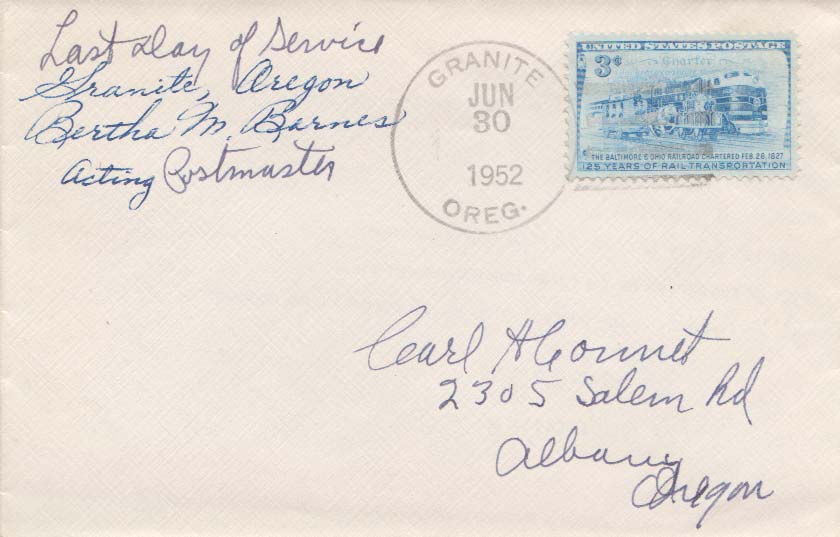 Last Day of Service
Granite, Oregon
Bertha M. Barnes
Acting Postmaster
GRANITE
JUN
30
1952
OREG.
UNITED STATES POSTAGE
3¢
Charter
THE BALTIMORE & OHIO RAILROAD CHARTERED FEB. 28, 1827
125 YEARS OF RAIL TRANSPORTATION
Carl H Cornnet
2305 Salem Rd
Albany
Oregon